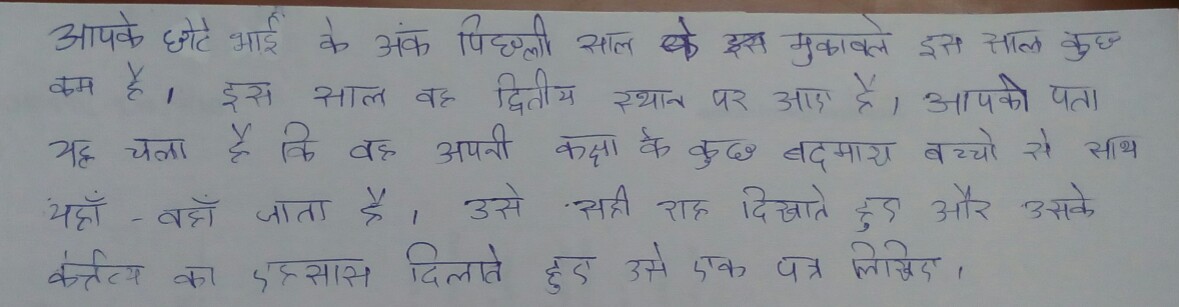 आपके छोटे भाई के अंक पिछली साल के इस मुकाबले इस साल कुछ
कम है। इस साल वह द्वितीय स्थान पर आए है। आपको पता
यह चला है कि वह अपनी कक्षा के कुछ बदमाश बच्चो से साथ
यहाँ - वहाँ जाता है। उसे सही राह दिखाते हुए और उसके
कर्त्तव्य का एहसास दिलाते हुए उसे एक पत्र लिखिए।